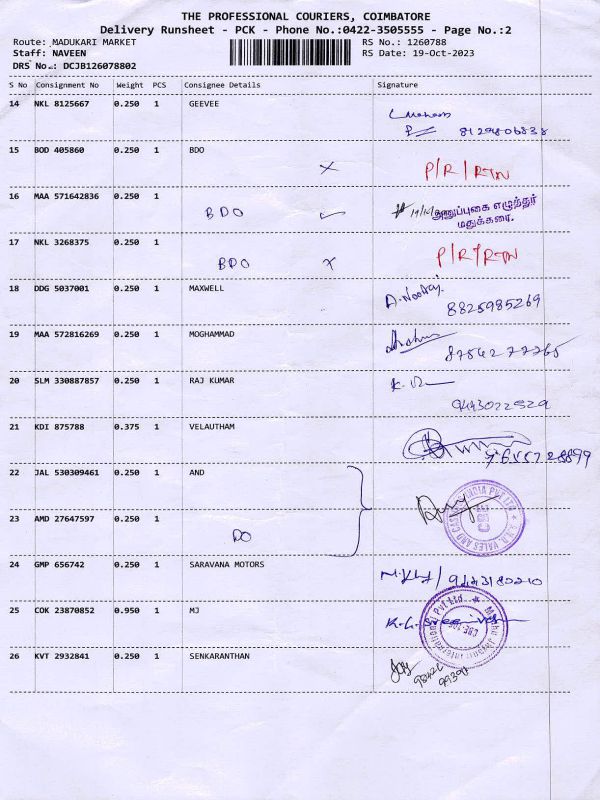 THE PROFESSIONAL COURIERS, COIMBATORE
Delivery Runsheet - PCK - Phone No.:0422-3505555 - Page No.:2
Route: MADUKARI MARKET RS No.: 1260788
Staff: NAVEEN RS Date: 19-Oct-2023
DRS No.: DCJB126078802
S No Consignment No Weight PCS Consignee Details Signature
14 NKL 8125667 0.250 1 GEEVEE
8129806838
15 BOD 405860 0.250 1 BDO
x P/R/RTN
16 MAA 571642836 0.250 1
BDO ✓ 19/10 அனுப்புகை எழுத்தர்
மதுக்கரை.
17 NKL 3268375 0.250 1
BDO x P/R/RTN
18 DDG 5037001 0.250 1 MAXWELL
8825985269
19 MAA 572816269 0.250 1 MOGHAMMAD
8754277765
20 SLM 330887857 0.250 1 RAJ KUMAR
9443022529
21 KDI 875788 0.375 1 VELAUTHAM
9655728899
22 JAL 530309461 0.250 1 AND
23 AMD 27647597 0.250 1
DO
24 GMP 656742 0.250 1 SARAVANA MOTORS
9443180210
25 COK 23870852 0.950 1 MJ
26 KVT 2932841 0.250 1 SENKARANTHAN